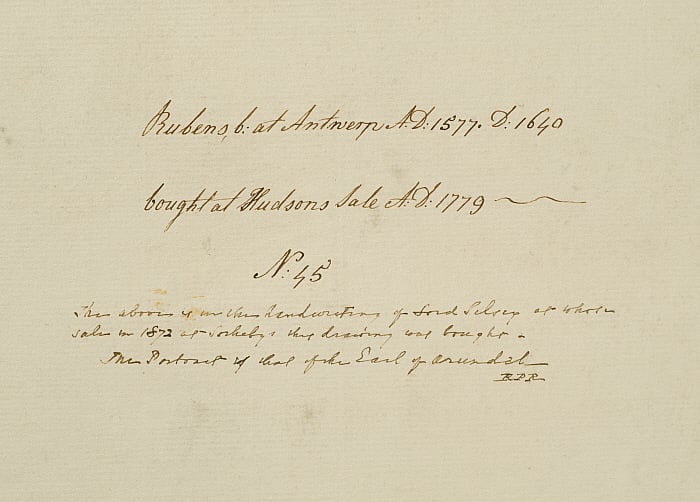 Rubens, b: at Antwerp A.D: 1577. D: 1640
bought at Hudsons Sale A.D: 1779
N: 45
The above is in the handwriting of Lord Selsey at whose
sale in 1872 at Sothebys this drawing was bought.
The Portrait is that of the Earl of Arundel
R.P.R.